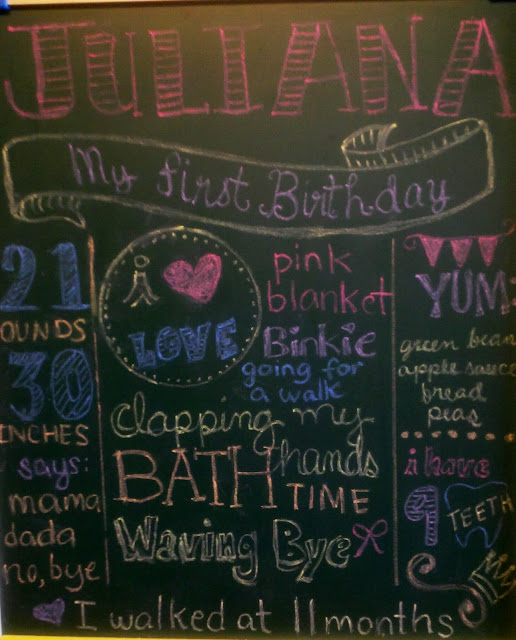 JULIANA
My first Birthday
21
OUNDS
30
INCHES
says:
mama
dada
no, bye
i
LOVE
pink
blanket
Binkie
going for
a walk
clapping my
hands
BATH
TIME
Waving Bye
YUM:
green bean
apple sauce
bread
peas
i have
9 TEETH
I walked at 11 months